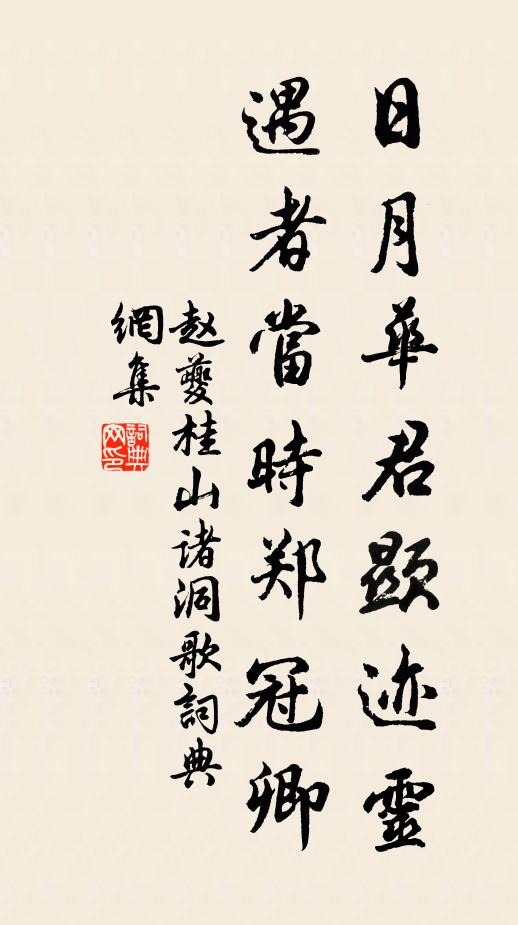 日月華君顯迹靈
遇者當時郑冠卿
赵夔桂山诸洞歌詞典
網集
詞典
网印